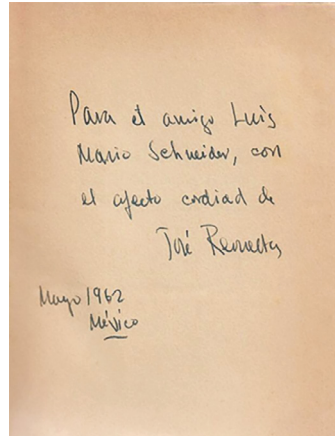 Para el amigo Luis
Mario Schneider, con
el afecto cordial de
José Revueltas
Mayo 1962
México